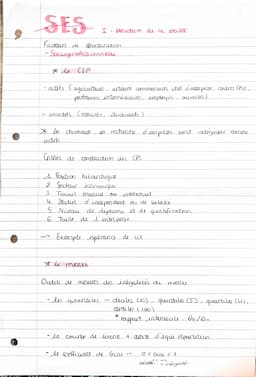 SES
I - structure de la société
Facteurs de structuration
- Socioprofessionnelle
* les CSP
- actifs (agriculteur, artisan commerçant chef d'entreprise, cadre CPIS,
professions intermédiaires, employés, ouvriers)
- inactifs (retraités, étudiants)
* les chomeurs en recherche d'emploi sont catégorisés comme
actifs
Critères de construction des CSP
1. Position hiérarchique
2. Secteur économique
3. Travail manuel ou intellectuel
4. Statut d'indépendant ou de salarié
5. Niveau de diplome et de qualification
6. Taille de l'entreprise
→ Exemple espérance de vie
* le revenu
Outils de mesures des inégalités du revenu
- les quantiles → déciles (10), quintiles (5), quartiles (4),
centiles (100)
* rapport interdécile : D9/D1
- la courbe de Lorenz + droite d'équirépartition
- le coefficient de Gini → 0 < G < 1